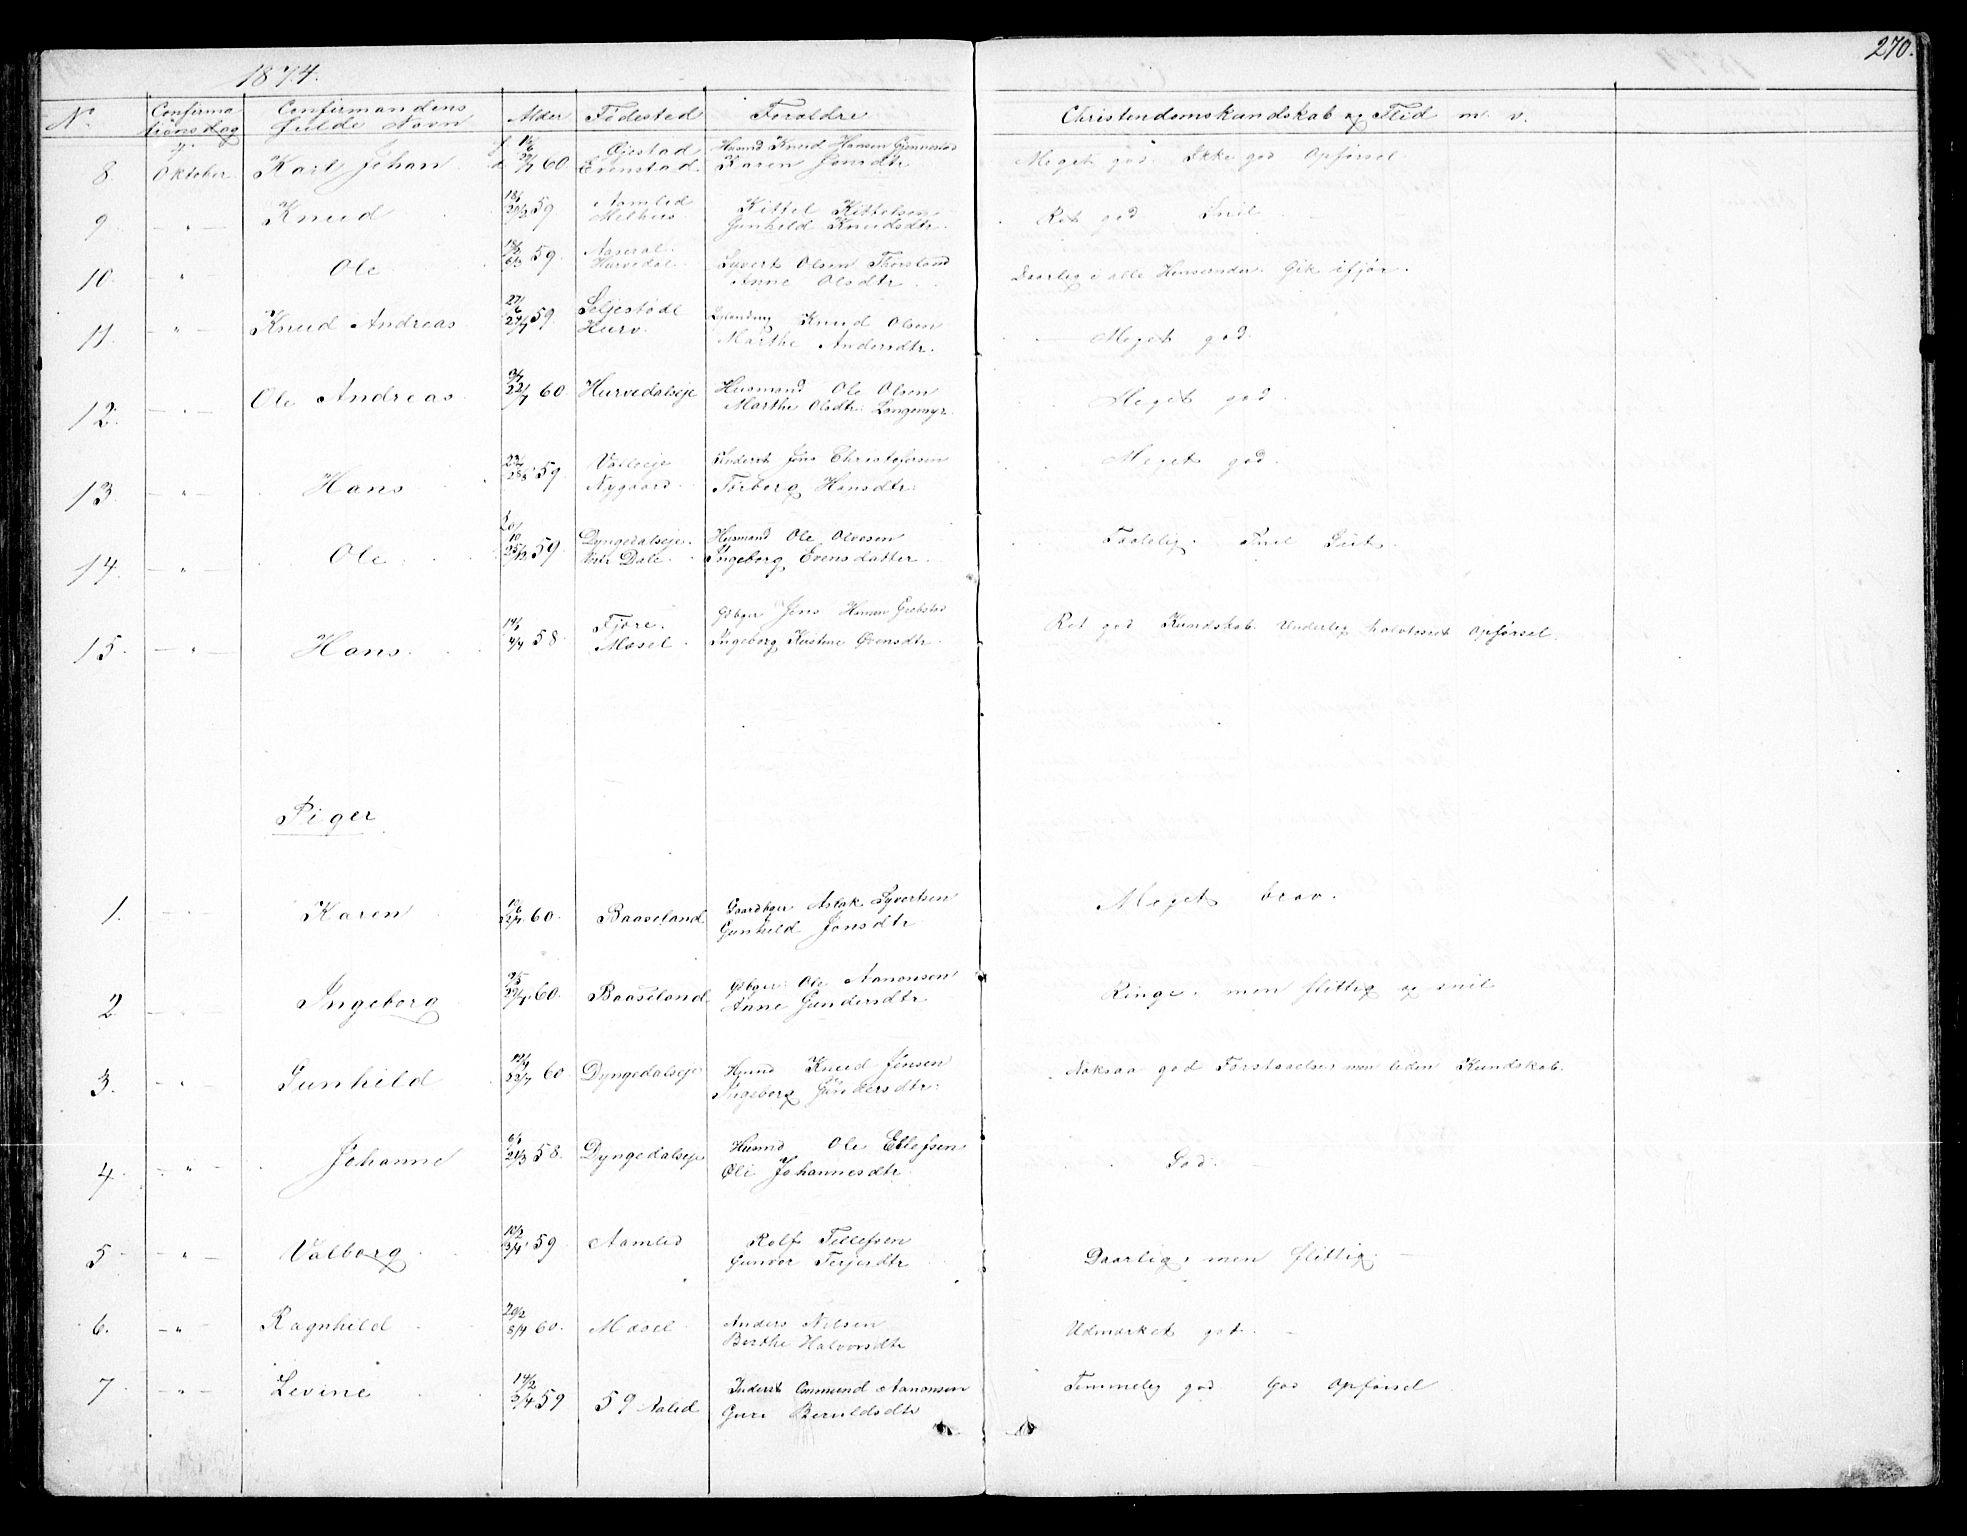 270.
1874.
No. Confirmationsdag Confirmandens fulde Navn Alder Födested Foreldre Christendomskundskab og Flid m. v.
8. 4 Oktober Karl Johan f 1/6 d 29/7 60 Øjestad Evenstad Husmd Knud Hansen
Karen Jonsdtr Meget god. Ikke god Opførsel.
9 — " — Knud 59 Aamlid Kittel Kittelsen
Gunhild Knudsdtr. Ret god Snil
10. " Ole 59. Aaseral. Hurvedal. Syvert Olsen Thorsland
Anne Olsdtr Daarlig i alle Henseender. Gik ifjor.
11. — " — Knud Andreas 27/6 24/7 59. Seljestødl Hurv. Knud Olsen
Marthe Andersdtr. Meget god.
12. — " — Ole Andreas 22/7 60 Hurvedalseje Husmand Ole Olsen
Marthe Olsdtr. Langemyr. Meget god.
13. — " — Hans 59 Valleeje Nygaard Inderst Jens Christofersen
Torborg Hansdtr. Meget god.
14. — " — Ole 20/10 25/12 59 Dyngedalseje. Dale Husmand Ole Olvesen
Ingeborg Evensdatter Taalelig. Snil Gut.
15. — " — Hans. 4/4 58. Fjøre. Mosel Gbger Jens Hansen
Ingeborg Kirstine Evensdtr Ret god Kundskab. Underlig halvtosset Opførsel.
Piger
1. Karen 60. Baaseland Gaardbger Aslak Syvertsen
Gunhild Jonsdtr Meget brav.
2. Ingeborg 60. Baaseland Gbger Ole Aanonsen
Anne Gundersdtr Ringe, men flittig og snil
3. " Gunhild 22/7 60 Dyngedalseje Hsmd Knud Jensen
Ingeborg Gundersdtr. Noksaa god Forstaaelse, men liden Kundskab.
4. — " — Johanne 21/3 58. Dyngedalseje Husmd Ole Ellefsen
Oli Johannesdtr God.
5 — " — Valborg 59 Aamlid Rolf Tellefsen
Gunvor Terjesdtr Daarlig, men flittig.
6. — " — Ragnhild 20/2 8/4 60. Mosel Anders Nilsen
Berthe Halvorsdtr Udmærket got.
7 — " — Levine 14/2 3/4 59 59 Aalid Inderst Omund Aanonsen
Guri Beruldsdtr Temmelig god God Opførsel